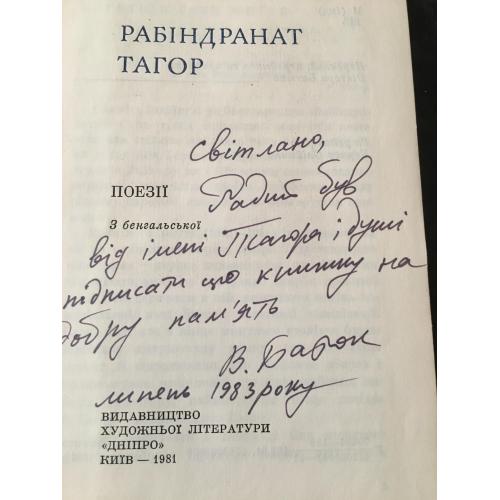 РАБІНДРАНАТ
ТАГОР
Світлано,
ПОЕЗІЇ
Радий був
З бенгальської
від імені Тагора і душі
підписати цю книжку на
добру пам'ять
В. Батюк
липень 1983 року
ВИДАВНИЦТВО
ХУДОЖНЬОЇ ЛІТЕРАТУРИ
«ДНІПРО»
КИЇВ — 1981